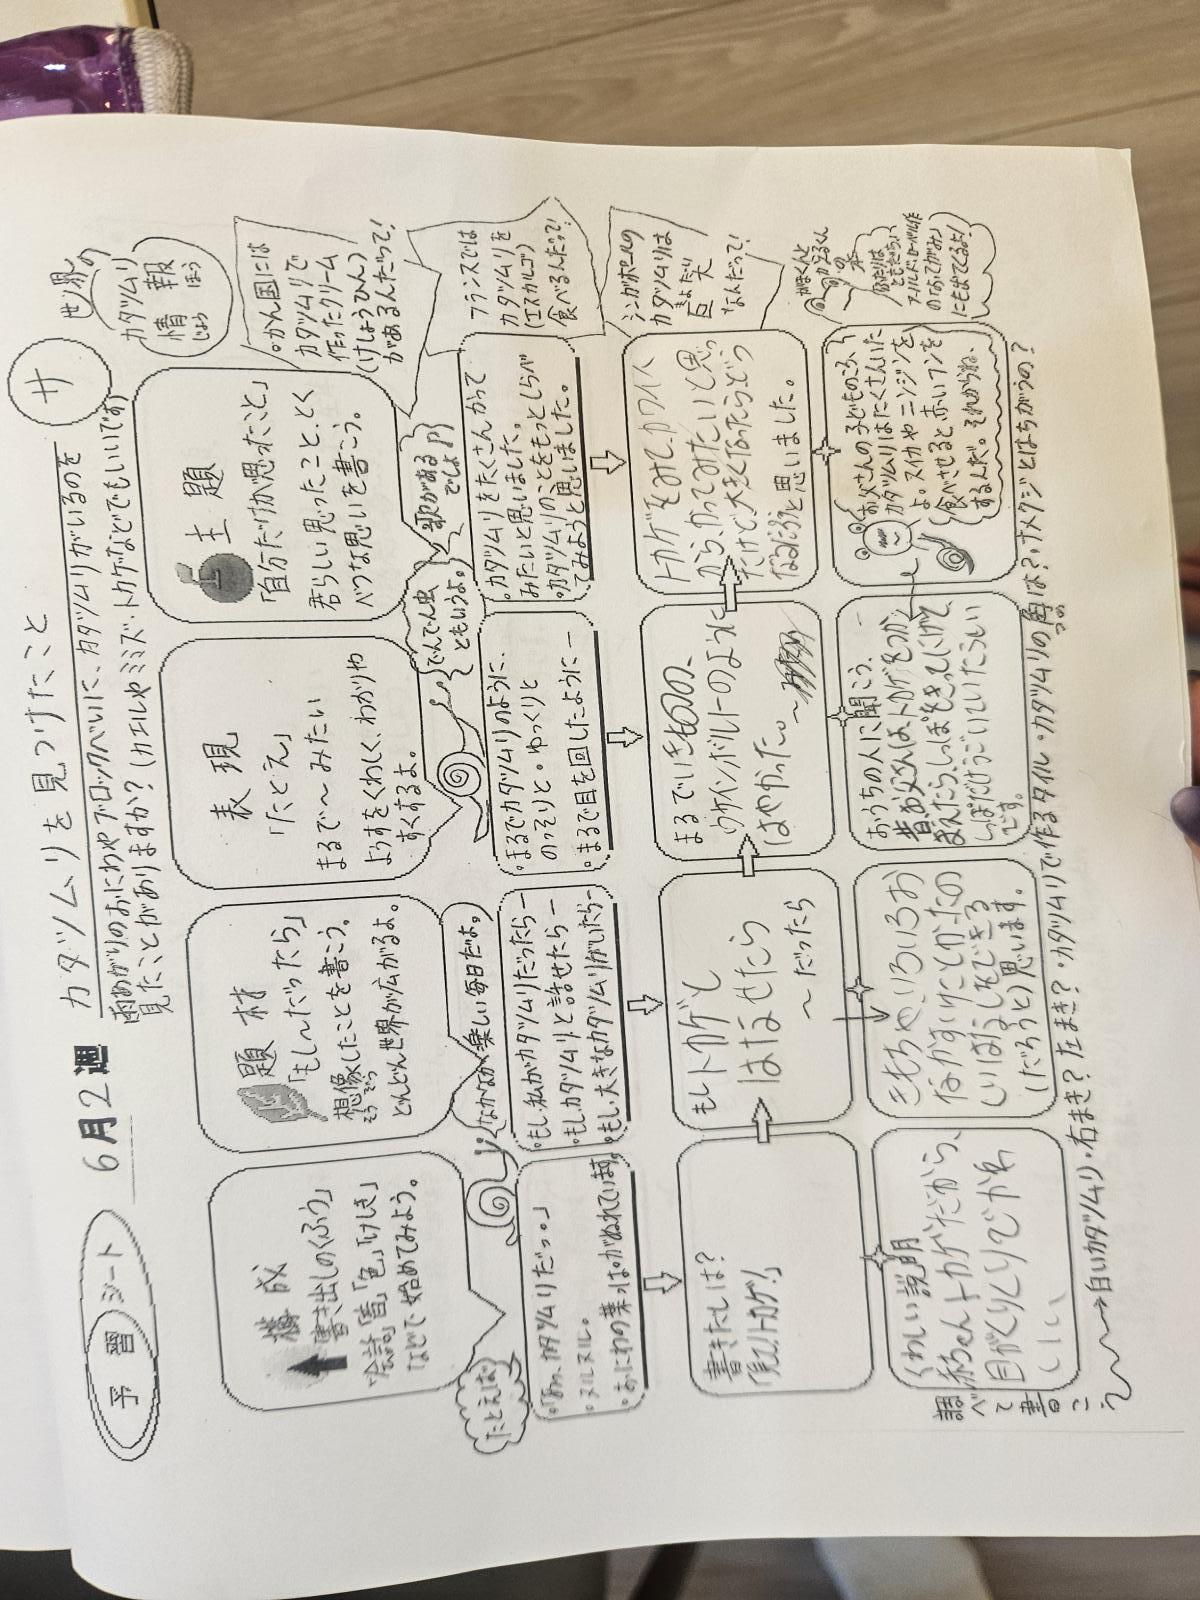 予習シート
6月2週
カタツムリを見つけたこと
サ
雨あがりのおにわやブロックべいに、カタツムリがいるのを
見たことがありますか？（カエルやミミズ・トカゲなどでもいいです）
世界の
カタツムリ
情報
じょうほう
構成
「書き出しのくふう」
「会話」「音」「色」「けしき」
などで始めてみよう。
題材
「もし〜だったら」
想像したことを書こう。
そうぞう
どんどん世界が広がるよ。
表現
「たとえ」
まるで〜みたい
ようすをくわしく、わかりや
すくするよ。
主題
「自分だけが思ったこと」
君らしい思ったこと、とく
べつな思いを書こう。
。かん国には
カタツムリで
作ったクリーム
(けしょうひん)
があるんだって！
たとえば
なかなか楽しい毎日だよ。
でんでん虫
ともいうよ。
歌がある
でしょ
フランスでは
カタツムリを
(エスカルゴ)
食べるんだって！
。「あっ、カタツムリだっ。」
。ヌルヌル。
。おにわの葉っぱがぬれています。
。もし、私がカタツムリだったらー
。もし、カタツムリと話せたらー
。もし、大きなカタツムリがいたらー
。まるでカタツムリのように、
のっそりと。ゆっくりと
。まるで目を回したようにー
。カタツムリをたくさんかって
みたいと思いました。
。カタツムリのことをもっとしらべ
てみようと思いました。
シンガポールの
カタツムリは
きょだい
巨大
なんだって！
書きだしは？
もしトカゲと
はなせたら
〜だったら
まるでいきものの、
ウサインボルトーのように
はやかった。〜
トカゲをみて、カワイイ
から、かってみたいと思っ
たけど大きくなったらどう
なるだろうと思いました。
がまくんと
かえるくん
の本
ふたりは
ともだち
にも出てるよ！
くわしい説明
赤ちゃんトカゲだから、
目がくりくりでかわ
いい
きもちや、いろいろお
なかすいたことかったの
しいはなしもできる
(だろうと)思います。
おうちの人に聞こう。
昔、お父さんは、トカゲをつか
まえたら、しっぽをきってにげて
しっぽだけうごいていたらしい
です。
お父さんの子どものころ、
カタツムリはたくさんいた
よ。スイカやニンジンを
食べさせると、赤いフンを
するんだ。それからね、
調べて書こう
→白いカタツムリ・右まき？左まき？・カタツムリで作るタイル・カタツムリの角は？・ナメクジとはちがうの？
つの